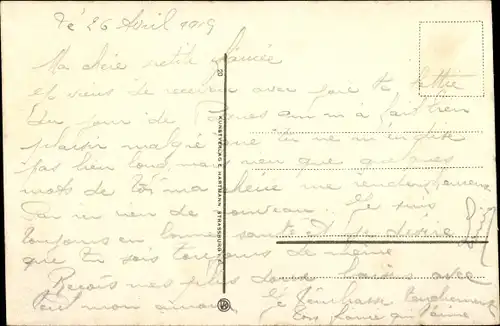 le 26 Avril 1919
Ma chère petite fiancée
et viens de recevoir avec joie ta lettre
du jour de Pâques qui m'a fait bien
plaisir malgré que tu ne m'en dise
pas bien long mais rien que quelques
mots de toi ma chérie me rende
Par ici rien de nouveau. Je suis
toujours en bonne santé et je désire
que tu sois toujours de même
Reçois mes plus doux baisers avec
tout mon amour
Ton qui t'aime
20
KUNSTVERLAG E. HARTMANN STRASSBURG i. E.